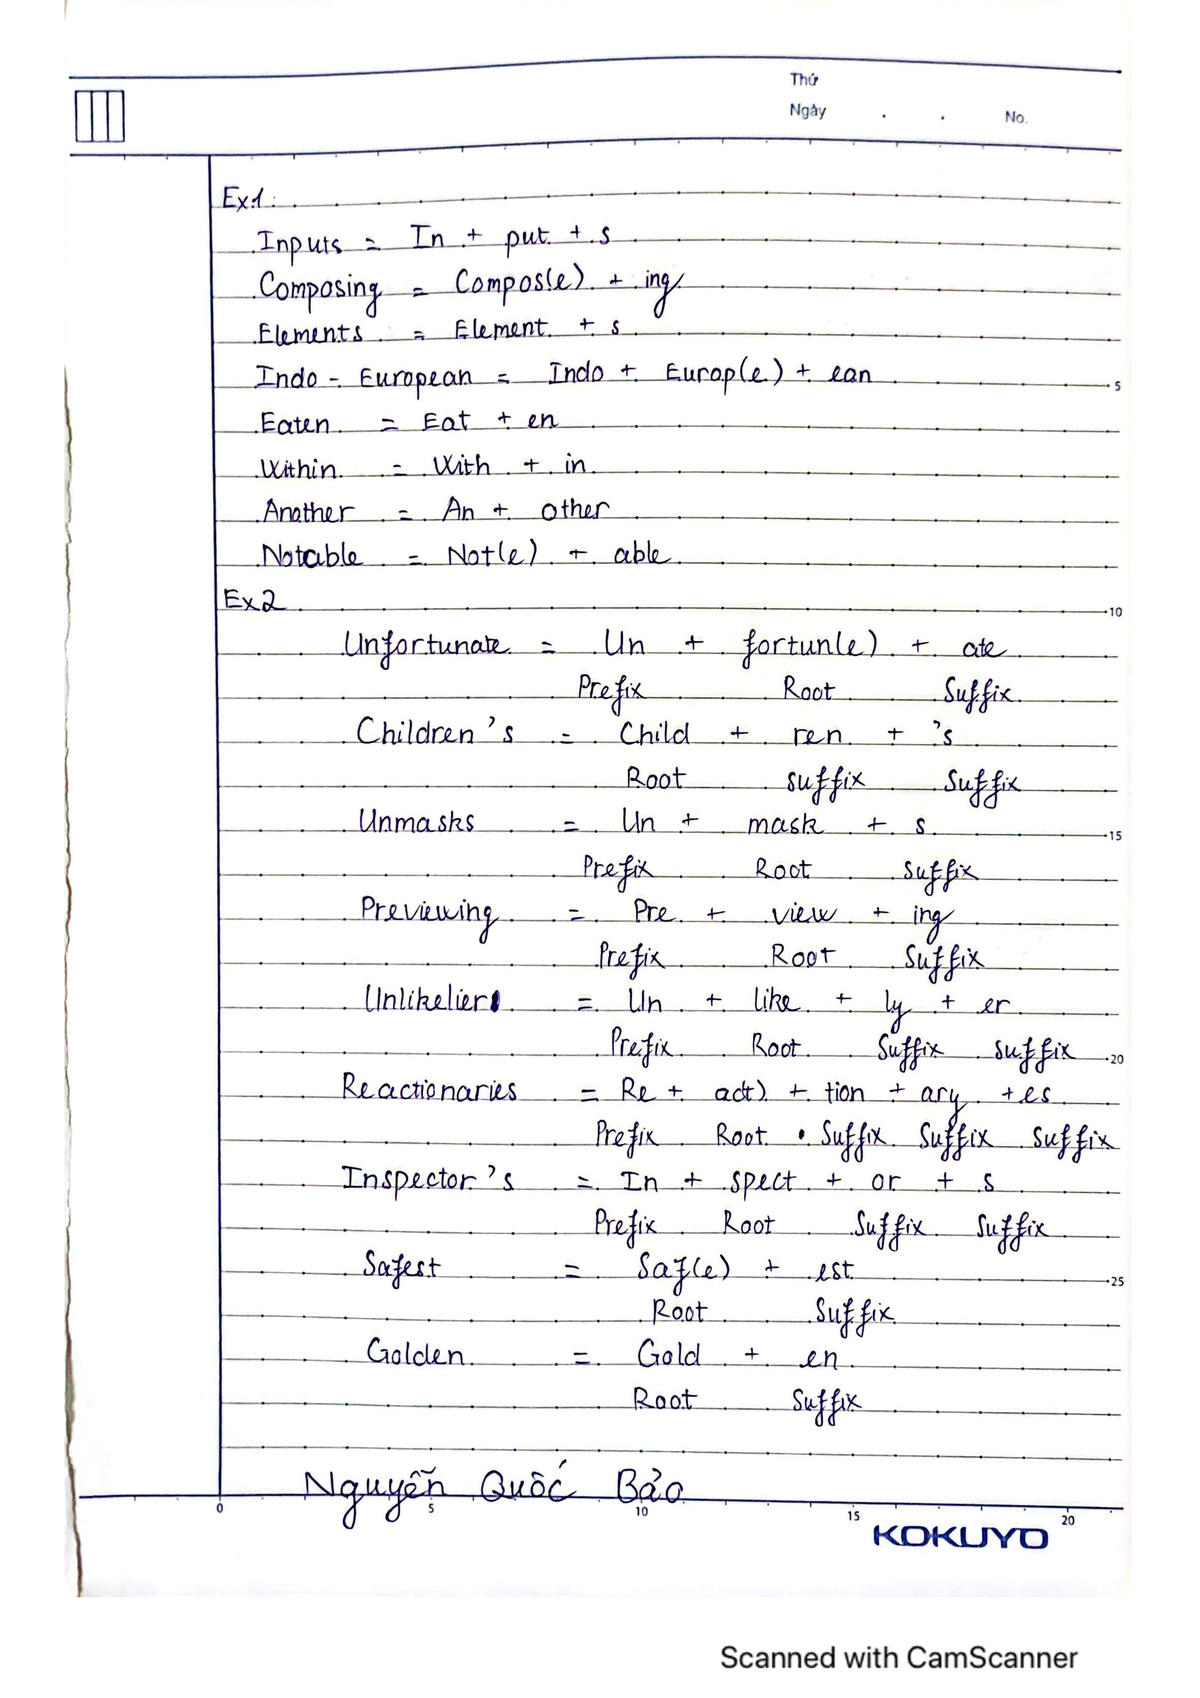 Thứ
Ngày . . No.
Ex1:
Inputs = In + put + s
Composing = Compos(e) + ing
Elements = Element + s
Indo - European = Indo + Europ(e) + ean
5
Eaten = Eat + en
Within = With + in
Another = An + other
Notable = Not(e) + able
Ex2
10
Unfortunate = Un + fortun(e) + ate
Prefix Root Suffix
Children's = Child + ren + 's
Root suffix Suffix
Unmasks = Un + mask + s
15
Prefix Root Suffix
Previewing = Pre + view + ing
Prefix Root Suffix
Unlikelier = Un + like + ly + er
Prefix Root Suffix suffix
20
Reactionaries = Re + act) + tion + ary + es
Prefix Root Suffix Suffix Suffix
Inspector's = In + spect + or + s
Prefix Root Suffix Suffix
Safest = Saf(e) + est
25
Root Suffix
Golden = Gold + en
Root Suffix
Nguyễn Quốc Bảo
0 5 10 15 20
KOKUYO
Scanned with CamScanner